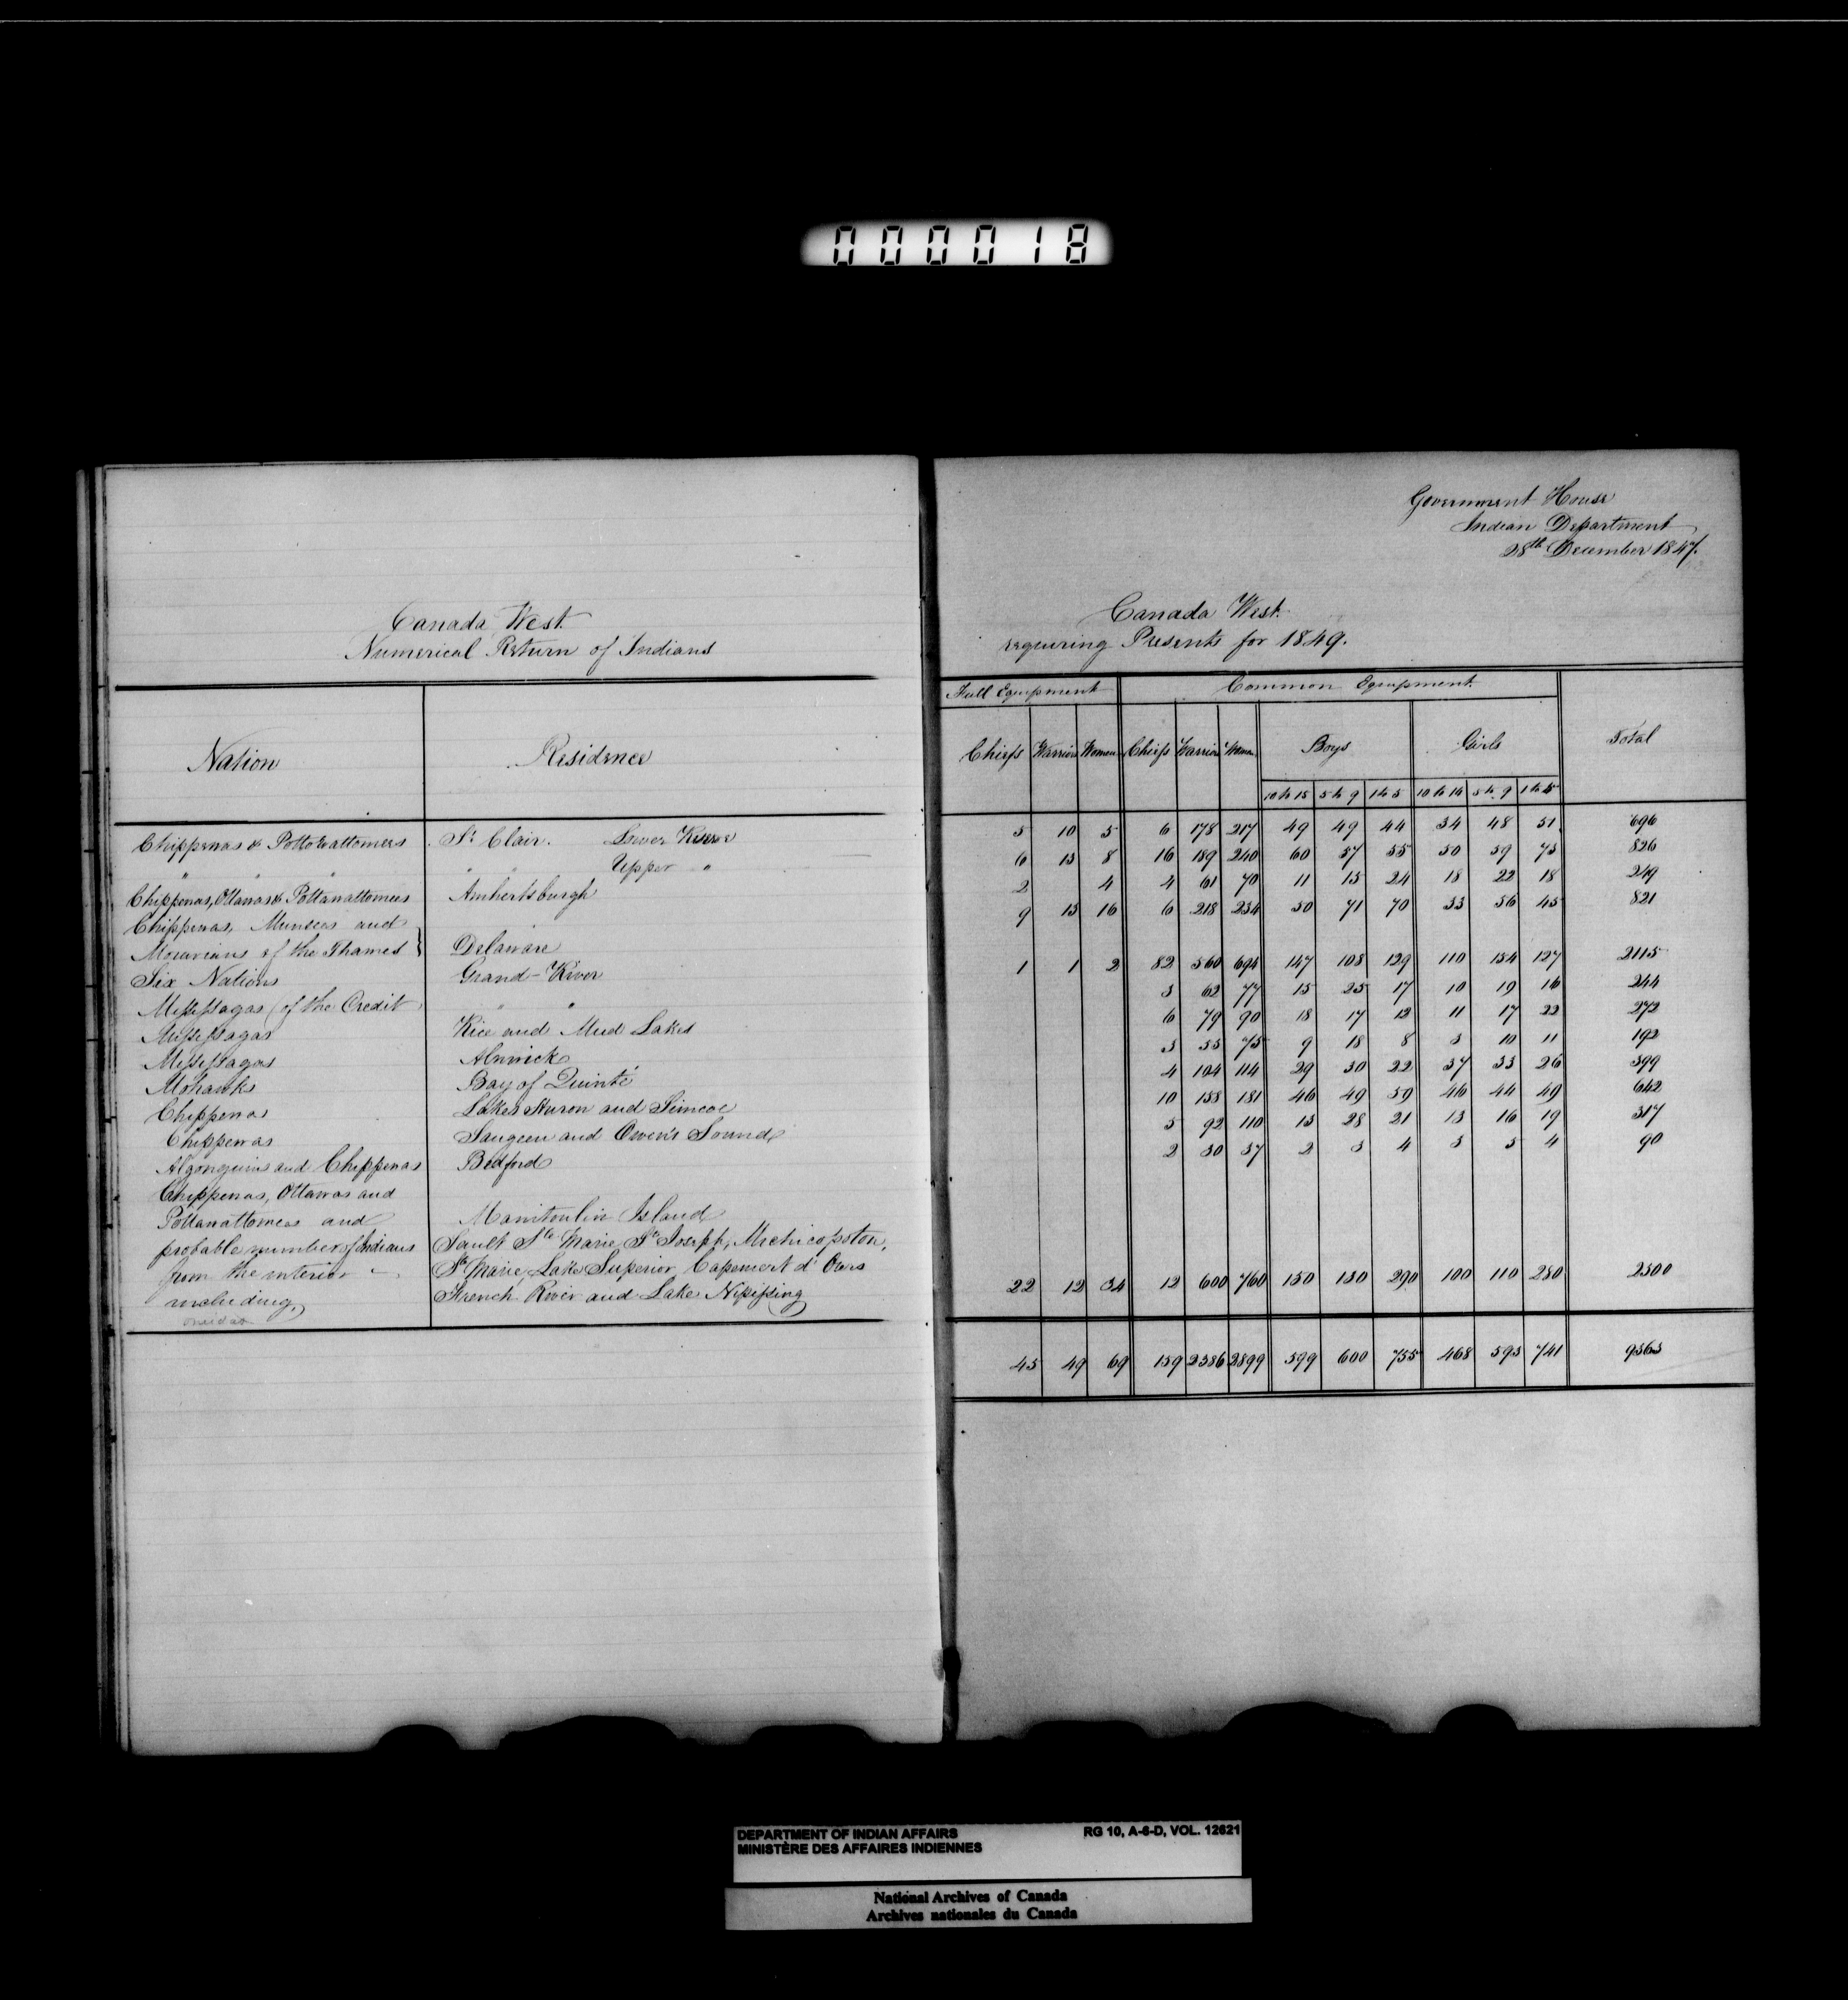 000018
Canada West.
Numerical Return of Indians
Nation Residence
Chippewas & Pottowattomies St Clair. Lower Reserve
" " " " " Upper "
Chippewas, Ottawas & Pottawattomees Amhertsburgh
Chippewas, Munsees and
Moravians of the Thames } Delaware
Six Nations Grand River
Mississagas (of the Credit " "
Mississagas Rice and Mud Lakes
Mississagas Alnwick
Mohawks Bay of Quinté
Chippewas Lakes Huron and Simcoe
Chippewas Saugeen and Owen's Sound
Algonquins and Chippewas Bedford
Chippewas, Ottawas and
Pottawattomees and Manitoulin Island
probable number of Indians Sault Ste Marie, St Joseph, Michicopoton,
from the interior — St Marie, Lake Superior
including, French River and Lake Nipissing
Oneidas
Government House
Indian Department
28th December 1847.
Canada West.
requiring Presents for 1849.
Full Equipment Common Equipment Total
Chiefs Warriors Women Chiefs Warriors Women Boys Girls
10 to 15 5 to 9 1 to 5 10 to 14 5 to 9 1 to 4
5 10 5 6 178 217 49 49 44 34 48 51 696
6 15 8 16 189 240 60 57 55 50 59 73 826
2 4 4 61 70 11 15 24 18 22 18 249
9 15 16 6 218 234 50 71 70 33 56 45 821
1 1 2 82 560 694 147 108 129 110 154 127 2115
3 62 77 15 25 17 10 19 16 244
6 79 90 18 17 12 11 17 22 272
3 55 75 9 18 8 3 10 11 192
4 104 114 29 30 22 37 33 26 399
10 158 181 46 49 59 46 44 49 642
5 92 110 13 28 21 13 16 19 317
2 30 37 2 3 4 3 5 4 90
22 12 34 12 600 760 150 130 290 100 110 280 2500
45 49 69 159 2386 2899 599 600 755 468 593 741 9363
DEPARTMENT OF INDIAN AFFAIRS RG 10, A-6-D, VOL. 12621
MINISTÈRE DES AFFAIRES INDIENNES
National Archives of Canada
Archives nationales du Canada